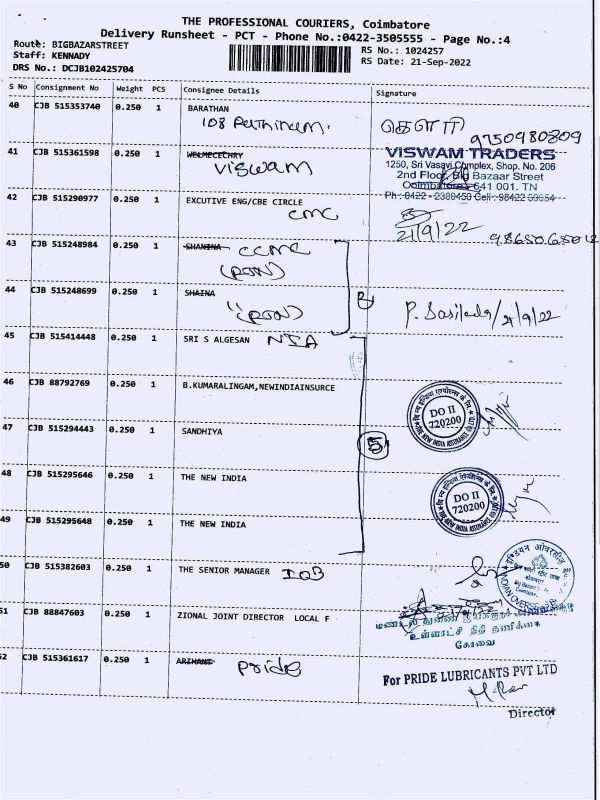 THE PROFESSIONAL COURIERS, Coimbatore
Delivery Runsheet - PCT - Phone No.:0422-3505555 - Page No.:4
Route: BIGBAZARSTREET
Staff: KENNADY
DRS No.: DCJB102425704
RS No.: 1024257
RS Date: 21-Sep-2022
S No Consignment No Weight PCS Consignee Details Signature
40 CJB 515353740 0.250 1 BARATHAN
108
கௌரி
9750980809
41 CJB 515361598 0.250 1 WELMECECHRY
Viswam
VISWAM TRADERS
1250, Sri Vasavi Complex, Shop. No. 206
2nd Floor, Big Bazaar Street
Coimbatore - 641 001. TN
Ph: 0422 - 2380450 Cell: 98422
42 CJB 515290977 0.250 1 EXCUTIVE ENG/CBE CIRCLE
CMC
21/9/22
43 CJB 515248984 0.250 1 SHANINA CCMC
44 CJB 515248699 0.250 1 SHAINA
21/9/22
45 CJB 515414448 0.250 1 SRI S ALGESAN NIA
46 CJB 88792769 0.250 1 B.KUMARALINGAM,NEWINDIAINSURCE
DO II
720200
47 CJB 515294443 0.250 1 SANDHIYA
5
48 CJB 515295646 0.250 1 THE NEW INDIA
DO II
720200
49 CJB 515295648 0.250 1 THE NEW INDIA
50 CJB 515382603 0.250 1 THE SENIOR MANAGER IOB
51 CJB 88847603 0.250 1 ZIONAL JOINT DIRECTOR LOCAL F
உள்ளாட்சி நிதி தணிக்கை
கோவை
52 CJB 515361617 0.250 1 ARIHANT pride
For PRIDE LUBRICANTS PVT LTD
Director